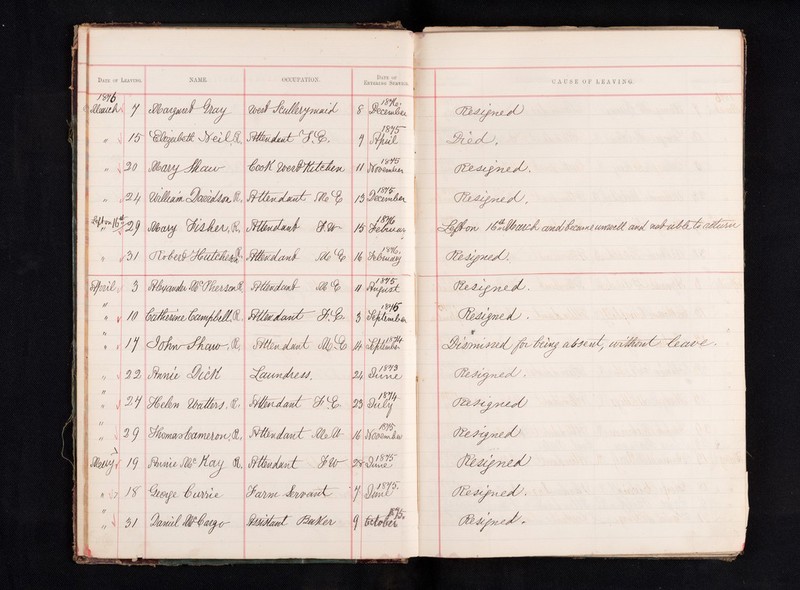 DATE OF LEAVING. NAME. OCCUPATION. DATE OF ENTERING SERVICE. CAUSE OF LEAVING.
1876
March 7 Margaret Gray West Scullerymaid 8 December 1876. Resigned
" 15 Elizabeth Neil R. Attendant F.E. 9 April 1875 Died.
" 20 Mary Shaw Cook West Kitchen 11 November 1875 Resigned.
" 24 William Davidson R. Attendant M E 13 December 1875 Resigned.
Left on 16th
" 29 Mary Fisher, R. Attendant F.W 15 February 1876 Left on 16th March and became unwell and not able to return
" 31 Robert Hutcheson R. Attendant M E 16 February 1876. Resigned.
April 3 Alexander McPherson R Attendant M E 11 August 1875 Resigned.
" 10 Catherine Campbell R. Attendant F.E. 3 September 1875 Resigned.
" 17 John Shaw. R. Attendant M.E 14 September 1874 Dismissed for being absent, without leave.
" 22 Annie Dick Laundress. 24 June 1873 Resigned.
" 24 Helen Watters. R. Attendant F.E. 23 July 1874. Resigned
" 29 Thomas Cameron, R. Attendant M.W 16 November 1875. Resigned
May 19 Annie McKay R. Attendant F.W 28 June 1875 Resigned
" 18 George Currie Farm Servant 7 June 1875. Resigned.
" 31 Daniel McCargo Assistant Baker 9 October 1875. Resigned.